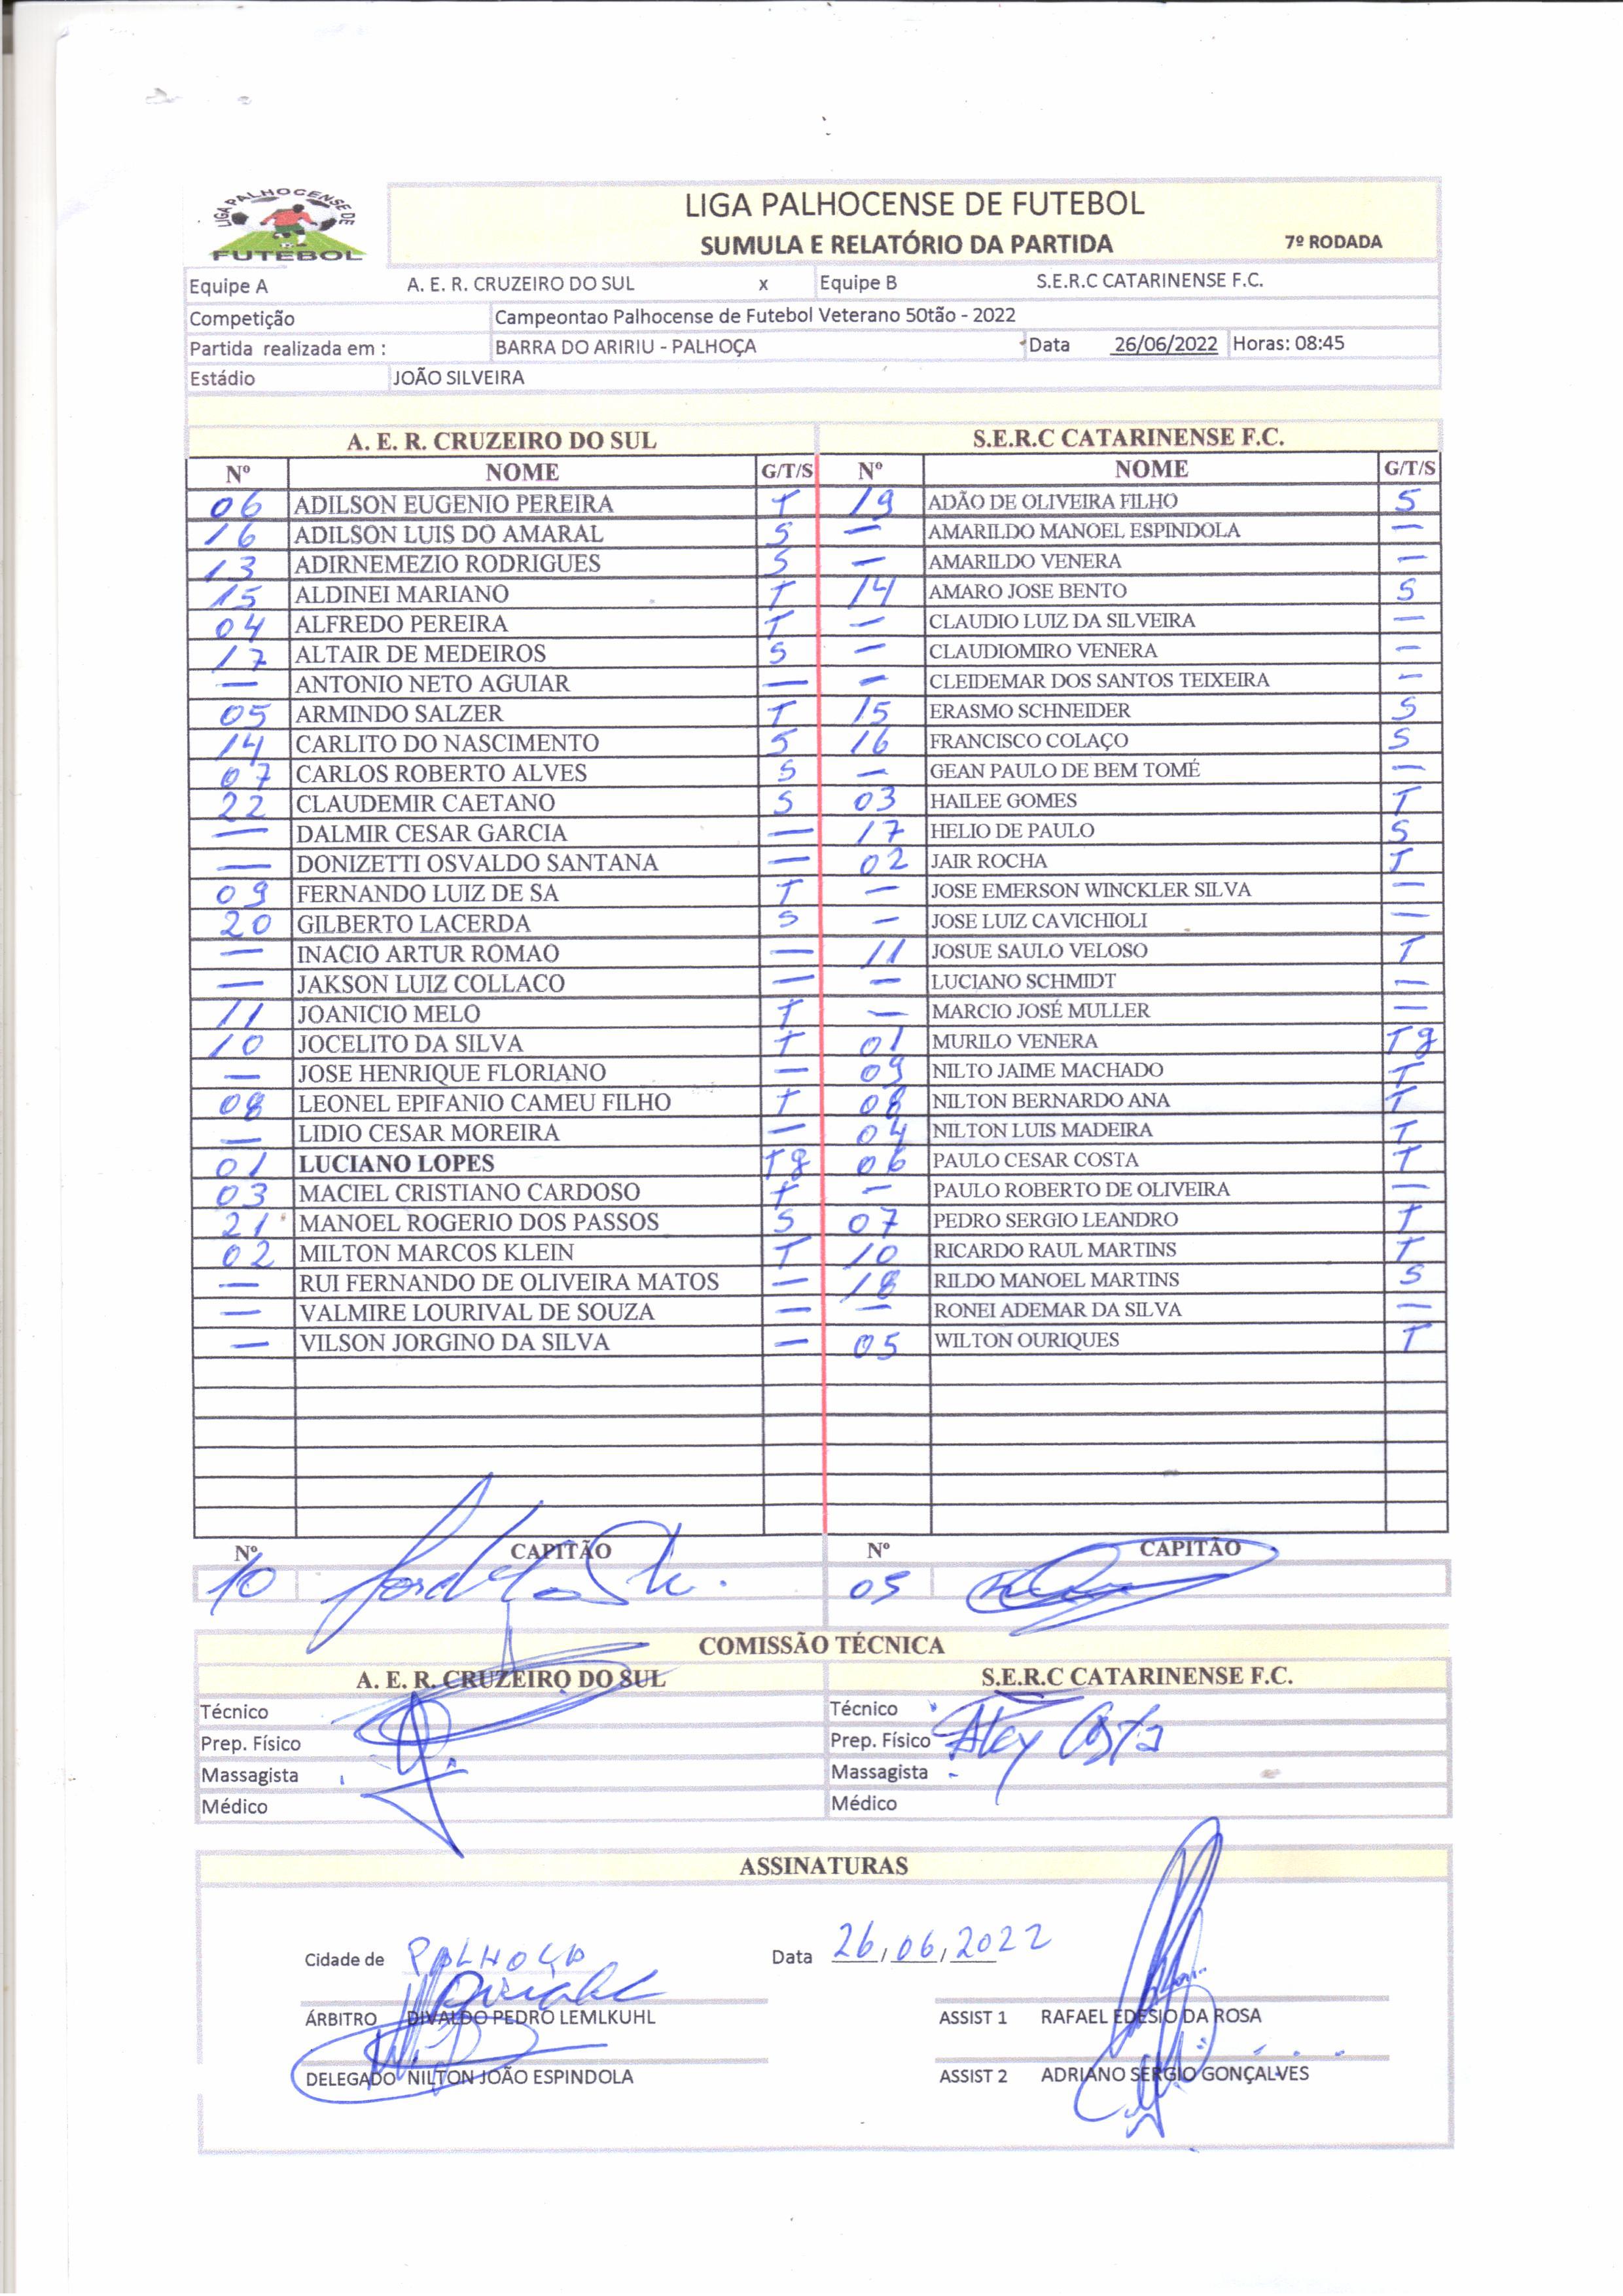 LIGA PALHOCENSE DE FUTEBOL
LIGA PALHOCENSE DE FUTEBOL
SUMULA E RELATÓRIO DA PARTIDA 7º RODADA
Equipe A A. E. R. CRUZEIRO DO SUL x Equipe B S.E.R.C CATARINENSE F.C.
Competição Campeontao Palhocense de Futebol Veterano 50tão - 2022
Partida realizada em : BARRA DO ARIRIU - PALHOÇA Data 26/06/2022 Horas: 08:45
Estádio JOÃO SILVEIRA
A. E. R. CRUZEIRO DO SUL S.E.R.C CATARINENSE F.C.
Nº NOME G/T/S Nº NOME G/T/S
06 ADILSON EUGENIO PEREIRA T 19 ADÃO DE OLIVEIRA FILHO S
16 ADILSON LUIS DO AMARAL S — AMARILDO MANOEL ESPINDOLA —
13 ADIRNEMEZIO RODRIGUES S — AMARILDO VENERA —
15 ALDINEI MARIANO T 14 AMARO JOSE BENTO S
04 ALFREDO PEREIRA T — CLAUDIO LUIZ DA SILVEIRA —
17 ALTAIR DE MEDEIROS S — CLAUDIOMIRO VENERA —
— ANTONIO NETO AGUIAR — — CLEIDEMAR DOS SANTOS TEIXEIRA —
05 ARMINDO SALZER T 15 ERASMO SCHNEIDER S
14 CARLITO DO NASCIMENTO S 16 FRANCISCO COLAÇO S
07 CARLOS ROBERTO ALVES S — GEAN PAULO DE BEM TOMÉ —
22 CLAUDEMIR CAETANO S 03 HAILEE GOMES T
— DALMIR CESAR GARCIA — 17 HELIO DE PAULO S
— DONIZETTI OSVALDO SANTANA — 02 JAIR ROCHA T
09 FERNANDO LUIZ DE SA T — JOSE EMERSON WINCKLER SILVA —
20 GILBERTO LACERDA S — JOSE LUIZ CAVICHIOLI —
— INACIO ARTUR ROMAO — 11 JOSUE SAULO VELOSO T
— JAKSON LUIZ COLLACO — — LUCIANO SCHMIDT —
11 JOANICIO MELO T — MARCIO JOSÉ MULLER —
10 JOCELITO DA SILVA T 01 MURILO VENERA T g
— JOSE HENRIQUE FLORIANO — 09 NILTO JAIME MACHADO T
08 LEONEL EPIFANIO CAMEU FILHO T 08 NILTON BERNARDO ANA T
— LIDIO CESAR MOREIRA — 04 NILTON LUIS MADEIRA T
01 LUCIANO LOPES T g 06 PAULO CESAR COSTA T
03 MACIEL CRISTIANO CARDOSO T — PAULO ROBERTO DE OLIVEIRA —
21 MANOEL ROGERIO DOS PASSOS S 07 PEDRO SERGIO LEANDRO T
02 MILTON MARCOS KLEIN T 10 RICARDO RAUL MARTINS T
— RUI FERNANDO DE OLIVEIRA MATOS — 18 RILDO MANOEL MARTINS S
— VALMIRE LOURIVAL DE SOUZA — — RONEI ADEMAR DA SILVA —
— VILSON JORGINO DA SILVA — 05 WILTON OURIQUES T
Nº CAPITÃO Nº CAPITÃO
10 05
COMISSÃO TÉCNICA
A. E. R. CRUZEIRO DO SUL S.E.R.C CATARINENSE F.C.
Técnico Técnico
Prep. Físico Prep. Físico Costa
Massagista Massagista
Médico Médico
ASSINATURAS
Cidade de PALHOÇA Data 26/06/2022
ÁRBITRO DIVALDO PEDRO LEMLKUHL ASSIST 1 RAFAEL EDESIO DA ROSA
DELEGADO NILTON JOÃO ESPINDOLA ASSIST 2 ADRIANO SERGIO GONÇALVES